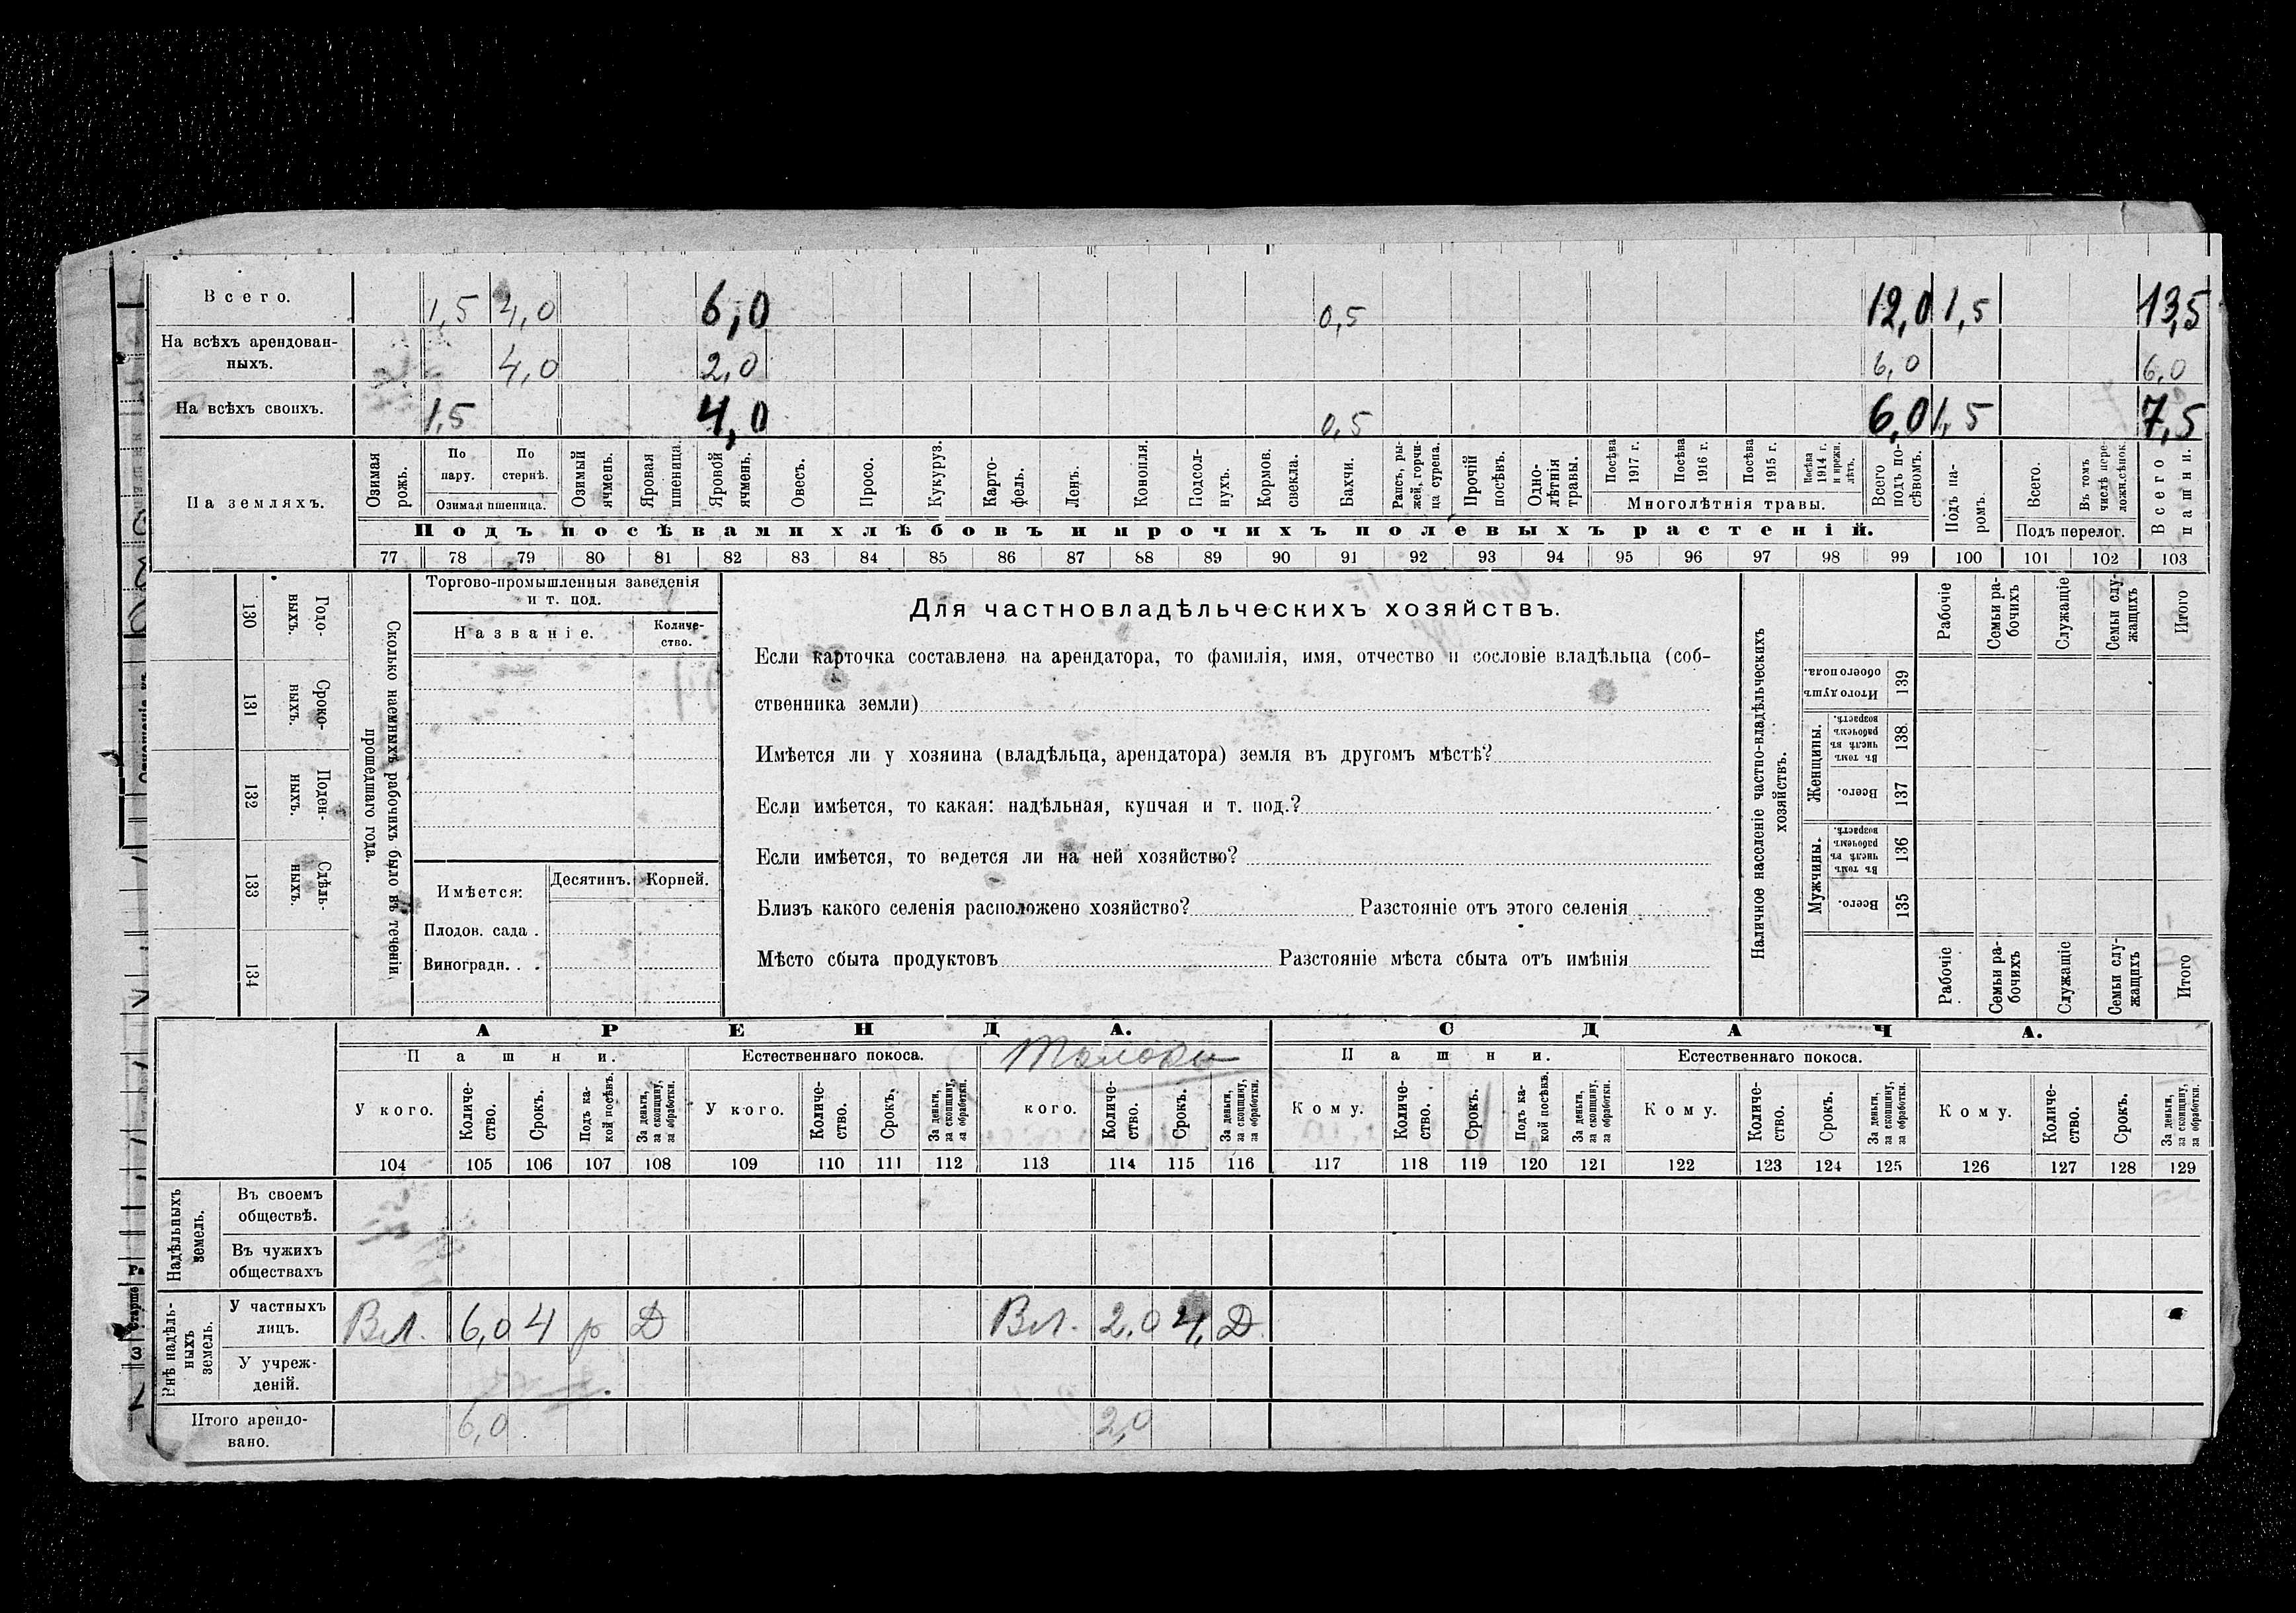 Всего. 1,5 4,0 6,0 0,5 12,0 1,5 13,5
На всѣхъ арендован-
ныхъ. 4,0 2,0 6,0 6,0
На всѣхъ своихъ. 1,5 4,0 0,5 6,0 1,5 7,5
На земляхъ.
Озимая рожь.
По пару.
По стернѣ.
Озимая пшеница.
Озимый ячмень.
Яровая пшеница.
Яровой ячмень.
Овесъ.
Просо.
Кукуруз.
Карто-
фель.
Ленъ.
Конопля.
Подсол-
нухъ.
Кормов. свекла.
Бахчи.
Рапсъ, ры-
жей, горчи-
ца сурепа.
Прочій посѣвъ.
Одно-
лѣтнія травы.
Посѣва 1917 г.
Посѣва 1916 г.
Посѣва 1915 г.
Посѣва 1914 г. и прежн. лѣтъ.
Многолѣтнія травы.
Всего подъ по-
сѣвомъ.
Подъ па-
ромъ.
Всего.
Въ томъ числѣ пере-
ложн.сѣнок.
Подъ перелог.
Всего пашни.
Подъ посѣвами хлѣбовъ и прочихъ полевыхъ растеній.
77 78 79 80 81 82 83 84 85 86 87 88 89 90 91 92 93 94 95 96 97 98 99 100 101 102 103
130 Годо-
выхъ.
131 Сроко-
ныхъ.
132 Поден-
ныхъ.
133 Сдѣль-
ныхъ.
134
Сколько наемныхъ рабочихъ было въ теченіи
прошедшаго года.
Торгово-промышленныя заведенія
и т. под.
Названіе.
Количе-
ство.
Имѣется: Десятинъ. Корней.
Плодов. сада .
Виноградн. . .
Для частновладѣльческихъ хозяйствъ.
Если карточка составлена на арендатора, то фамилія, имя, отчество и сословіе владѣльца (соб-
ственника земли)
Имѣется ли у хозяина (владѣльца, арендатора) земля въ другомъ мѣстѣ?
Если имѣется, то какая: надѣльная, купчая и т. под.?
Если имѣется, то ведется ли на ней хозяйство?
Близъ какого селенія расположено хозяйство? Разстояніе отъ этого селенія
Мѣсто сбыта продуктовъ Разстояніе мѣста сбыта отъ имѣнія
Наличное населеніе частно-владѣльческихъ
хозяйствъ.
Рабочіе
Семьи ра-
бочихъ
Служащіе
Семьи слу-
жащихъ
Итого
Итого душъ обоего пола. 139
Женщины.
Въ томъ числѣ въ рабочемъ возрастѣ. 138
Всего. 137
Мужчины.
Въ томъ числѣ въ рабочемъ возрастѣ. 136
Всего. 135
Рабочіе
Семьи ра-
бочихъ
Служащіе
Семьи слу-
жащихъ
Итого
АРЕНДА. СДАЧА.
Пашни. Естественнаго покоса. Толоки Пашни. Естественнаго покоса.
У кого.
Количе-
ство.
Срокъ.
Подъ ка-
кой посѣвъ.
За деньги, за скопщину, за обработки.
У кого.
Количе-
ство.
Срокъ.
За деньги, за скопщину, за обработки.
кого.
Количе-
ство.
Срокъ.
За деньги, за скопщину, за обработки.
Кому.
Количе-
ство.
Срокъ.
Подъ ка-
кой посѣвъ.
За деньги, за скопщину, за обработки.
Кому.
Количе-
ство.
Срокъ.
За деньги, за скопщину, за обработки.
Кому.
Количе-
ство.
Срокъ.
За деньги, за скопщину, за обработки.
104 105 106 107 108 109 110 111 112 113 114 115 116 117 118 119 120 121 122 123 124 125 126 127 128 129
Надѣльныхъ
земель.
Въ своемъ
обществѣ.
Въ чужихъ
обществахъ
Внѣ надѣль-
ныхъ
земель.
У частныхъ
лицъ. Вл. 6,0 4 р Д Вл. 2,0 4, Д
У учреж-
деній.
Итого арендо-
вано. 6,0 2,0